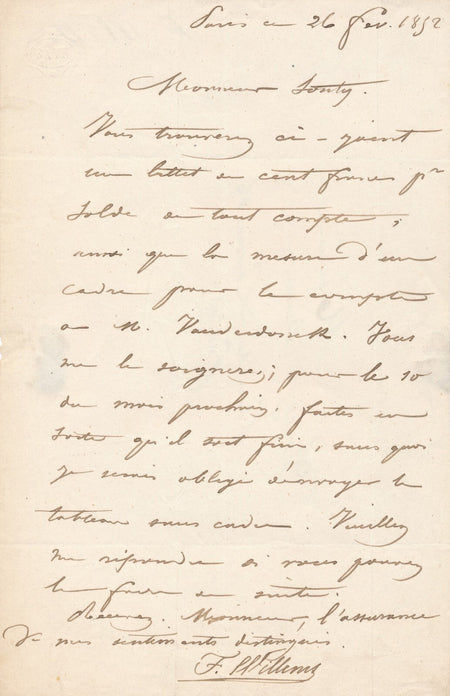 Paris ce 26 fev. 1852
Monsieur Souty.
Vous trouverez ci-joint
un billet de cent francs pr
solde de tout compte,
ainsi que la mesure d'un
cadre pour le compte
de M. Vanderdonck. Vous
me le soignerez; pour le 10
du mois prochain. faites en
sorte qu'il soit fini, sans quoi
je serais obligé d'envoyer le
tableau sans cadre. Veuillez
me répondre si vous pouvez
le faire de suite.
Recevez, Monsieur, l'assurance
de mes sentiments distingués.
F. Willems